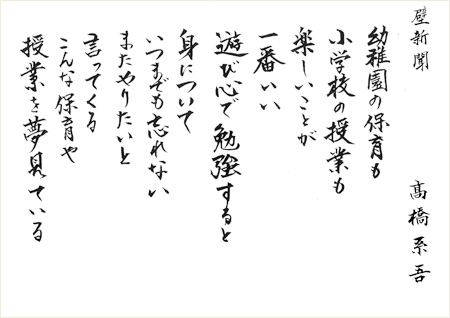 壁新聞
髙橋系吾
幼稚園の保育も
小学校の授業も
楽しいことが
一番いい
遊び心で勉強すると
身について
いつまでも忘れない
またやりたいと
言ってくる
こんな保育や
授業を夢見ている